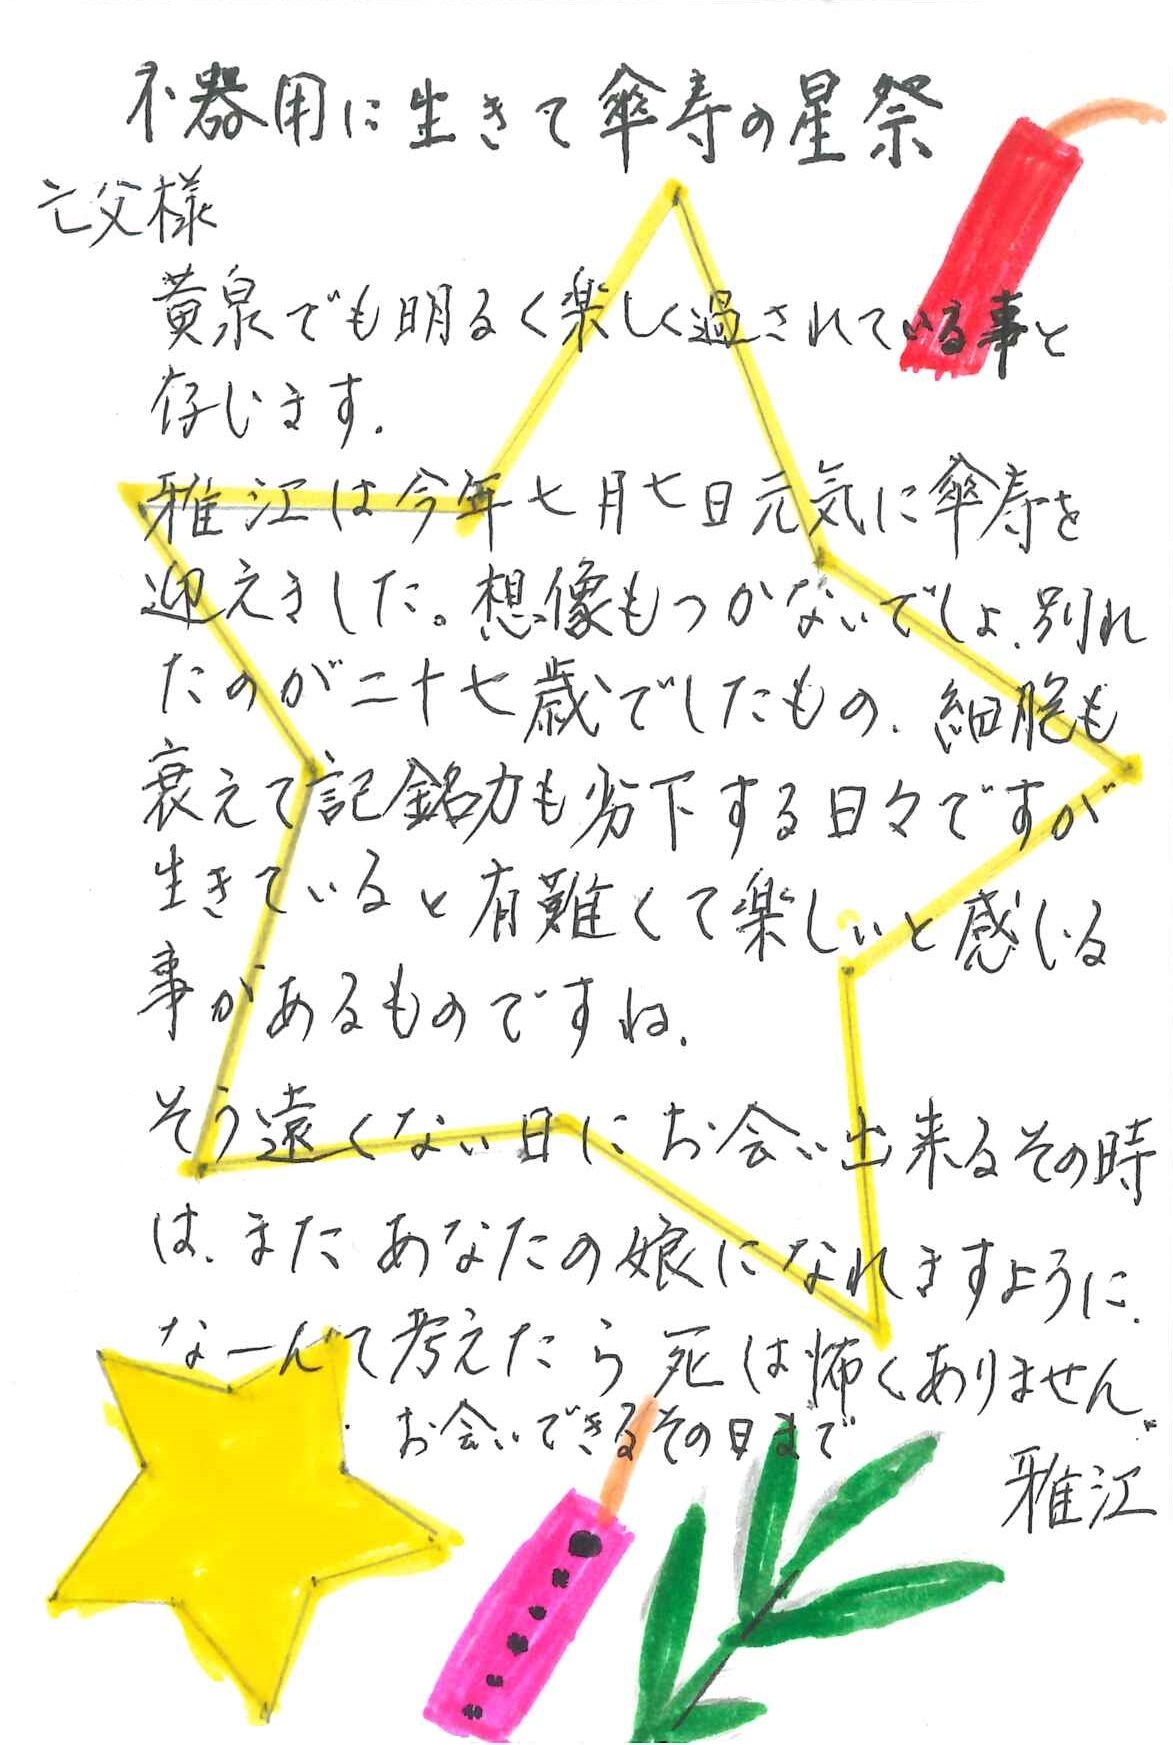 不器用に生きて傘寿の星祭
亡父様
黄泉でも明るく楽しく過されている事と
存じます.
雅江は今年七月七日元気に傘寿を
迎えました。想像もつかないでしょ.別れ
たのが二十七歳でしたもの.細胞も
衰えて記銘力も劣下する日々ですが
生きていると有難くて楽しいと感じる
事があるものですね.
そう遠くない日にお会い出来るその時
は、またあなたの娘になれますように.
なーんて考えたら死は怖くありません.
お会いできるその日まで
雅江